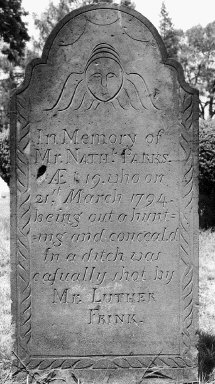 In Memory of
Mr. Nath. Parks.
Æt 19. who on
21st March 1794.
being out a hunt-
ing and conceald
in a ditch was
casually shot by
Mr. Luther
Frink.